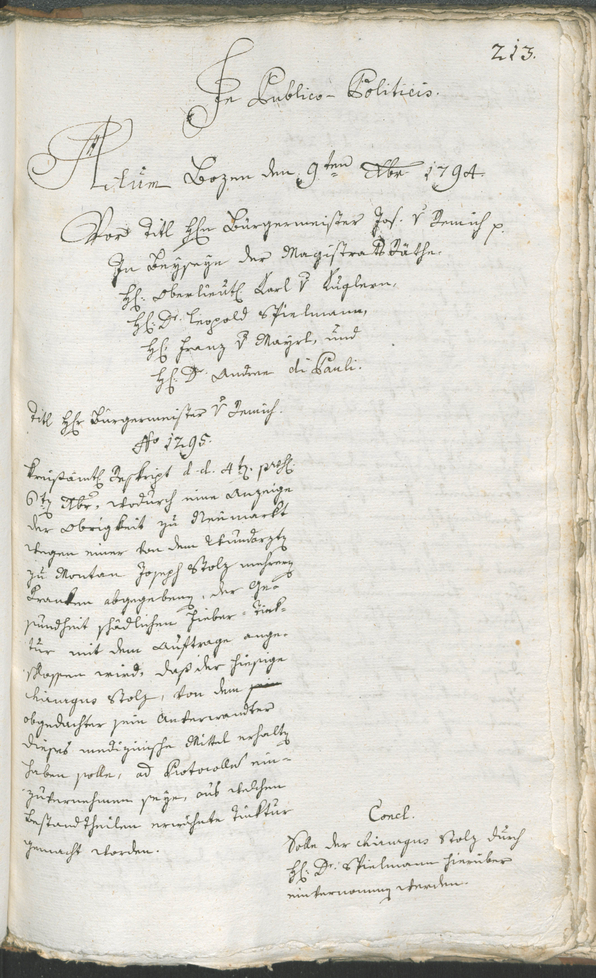 213.
In Publico-Politicis.
Actum Bozen den 9ten Xbr 1794.
Vor Titl Hrn Bürgermeister Jos. v Remich p.
In Beyseyn der Magistrats Räthe.
H: Oberlieut: Karl v Kuglern,
H: Dr. Leopold Spielmann,
H: Franz v Mayrl, und
H: D. Andree di Pauli.
Titl Hr Bürgermeister v Remich.
No 1295.
Kreisämtl Reskript d. d. 4t, praes:
6t Xbr, wodurch eine Anzeige
der Obrigkeit zu Neumarkt
wegen einer von dem Wundarzt
zu Montan Joseph Stolz mehrern
Kranken abgegebenen, der Ge-
sundheit schädlichen Fieber-Tink-
tur mit dem Auftrage ange-
schlossen wird, daß der hiesige
Chirurgus Stolz, von dem
obgedachter sein Anverwandter
dieses medizinische Mittel erhalten
haben solle, ad Protocollum ein-
zuvernehmen seye, aus welchen
Bestandtheilen erwähnte Tinktur
gemacht worden.
Concl.
Solle der Chirurgus Stolz durch
H: Dr. Spielmann hierüber
einvernommen werden.